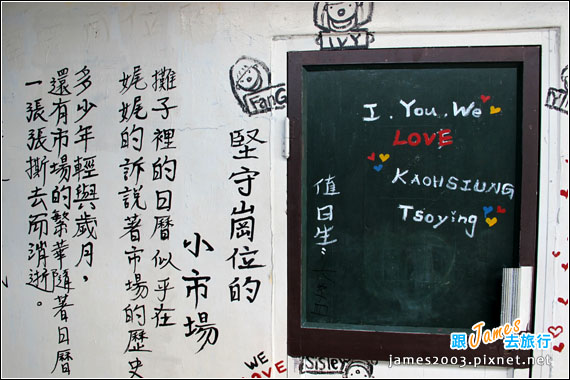 堅守崗位的
小市場
攤子裡的日曆似乎在
娓娓的訴說著市場的歷史
多少年輕與歲月,
還有市場的繁華隨著日曆
一張張撕去而消逝。
IVY
FanG
I . You . We
LOVE
KAOHSIUNG
Tsoying
值日生:
WE
LOVE
Sister
跟James去旅行
james2003.pixnet.net